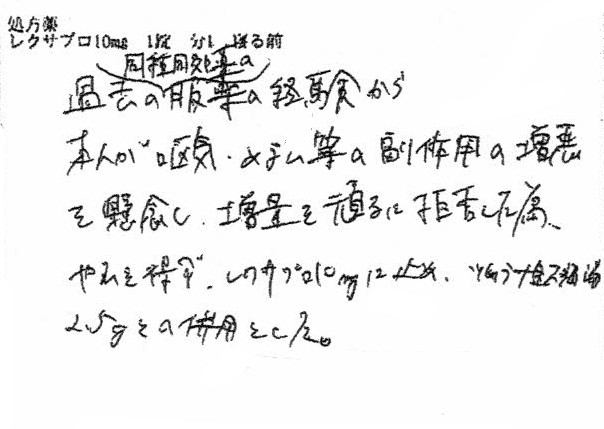 処方薬
レクサプロ10mg 1錠 分1 寝る前
同種同効薬の
過去の服薬の経験から
本人が嘔気・めまい等の副作用の増悪
を懸念し、増量を頑なに拒否した為、
やむを得ず、レクサプロ10mgに止め、
2.5gとの併用とした。